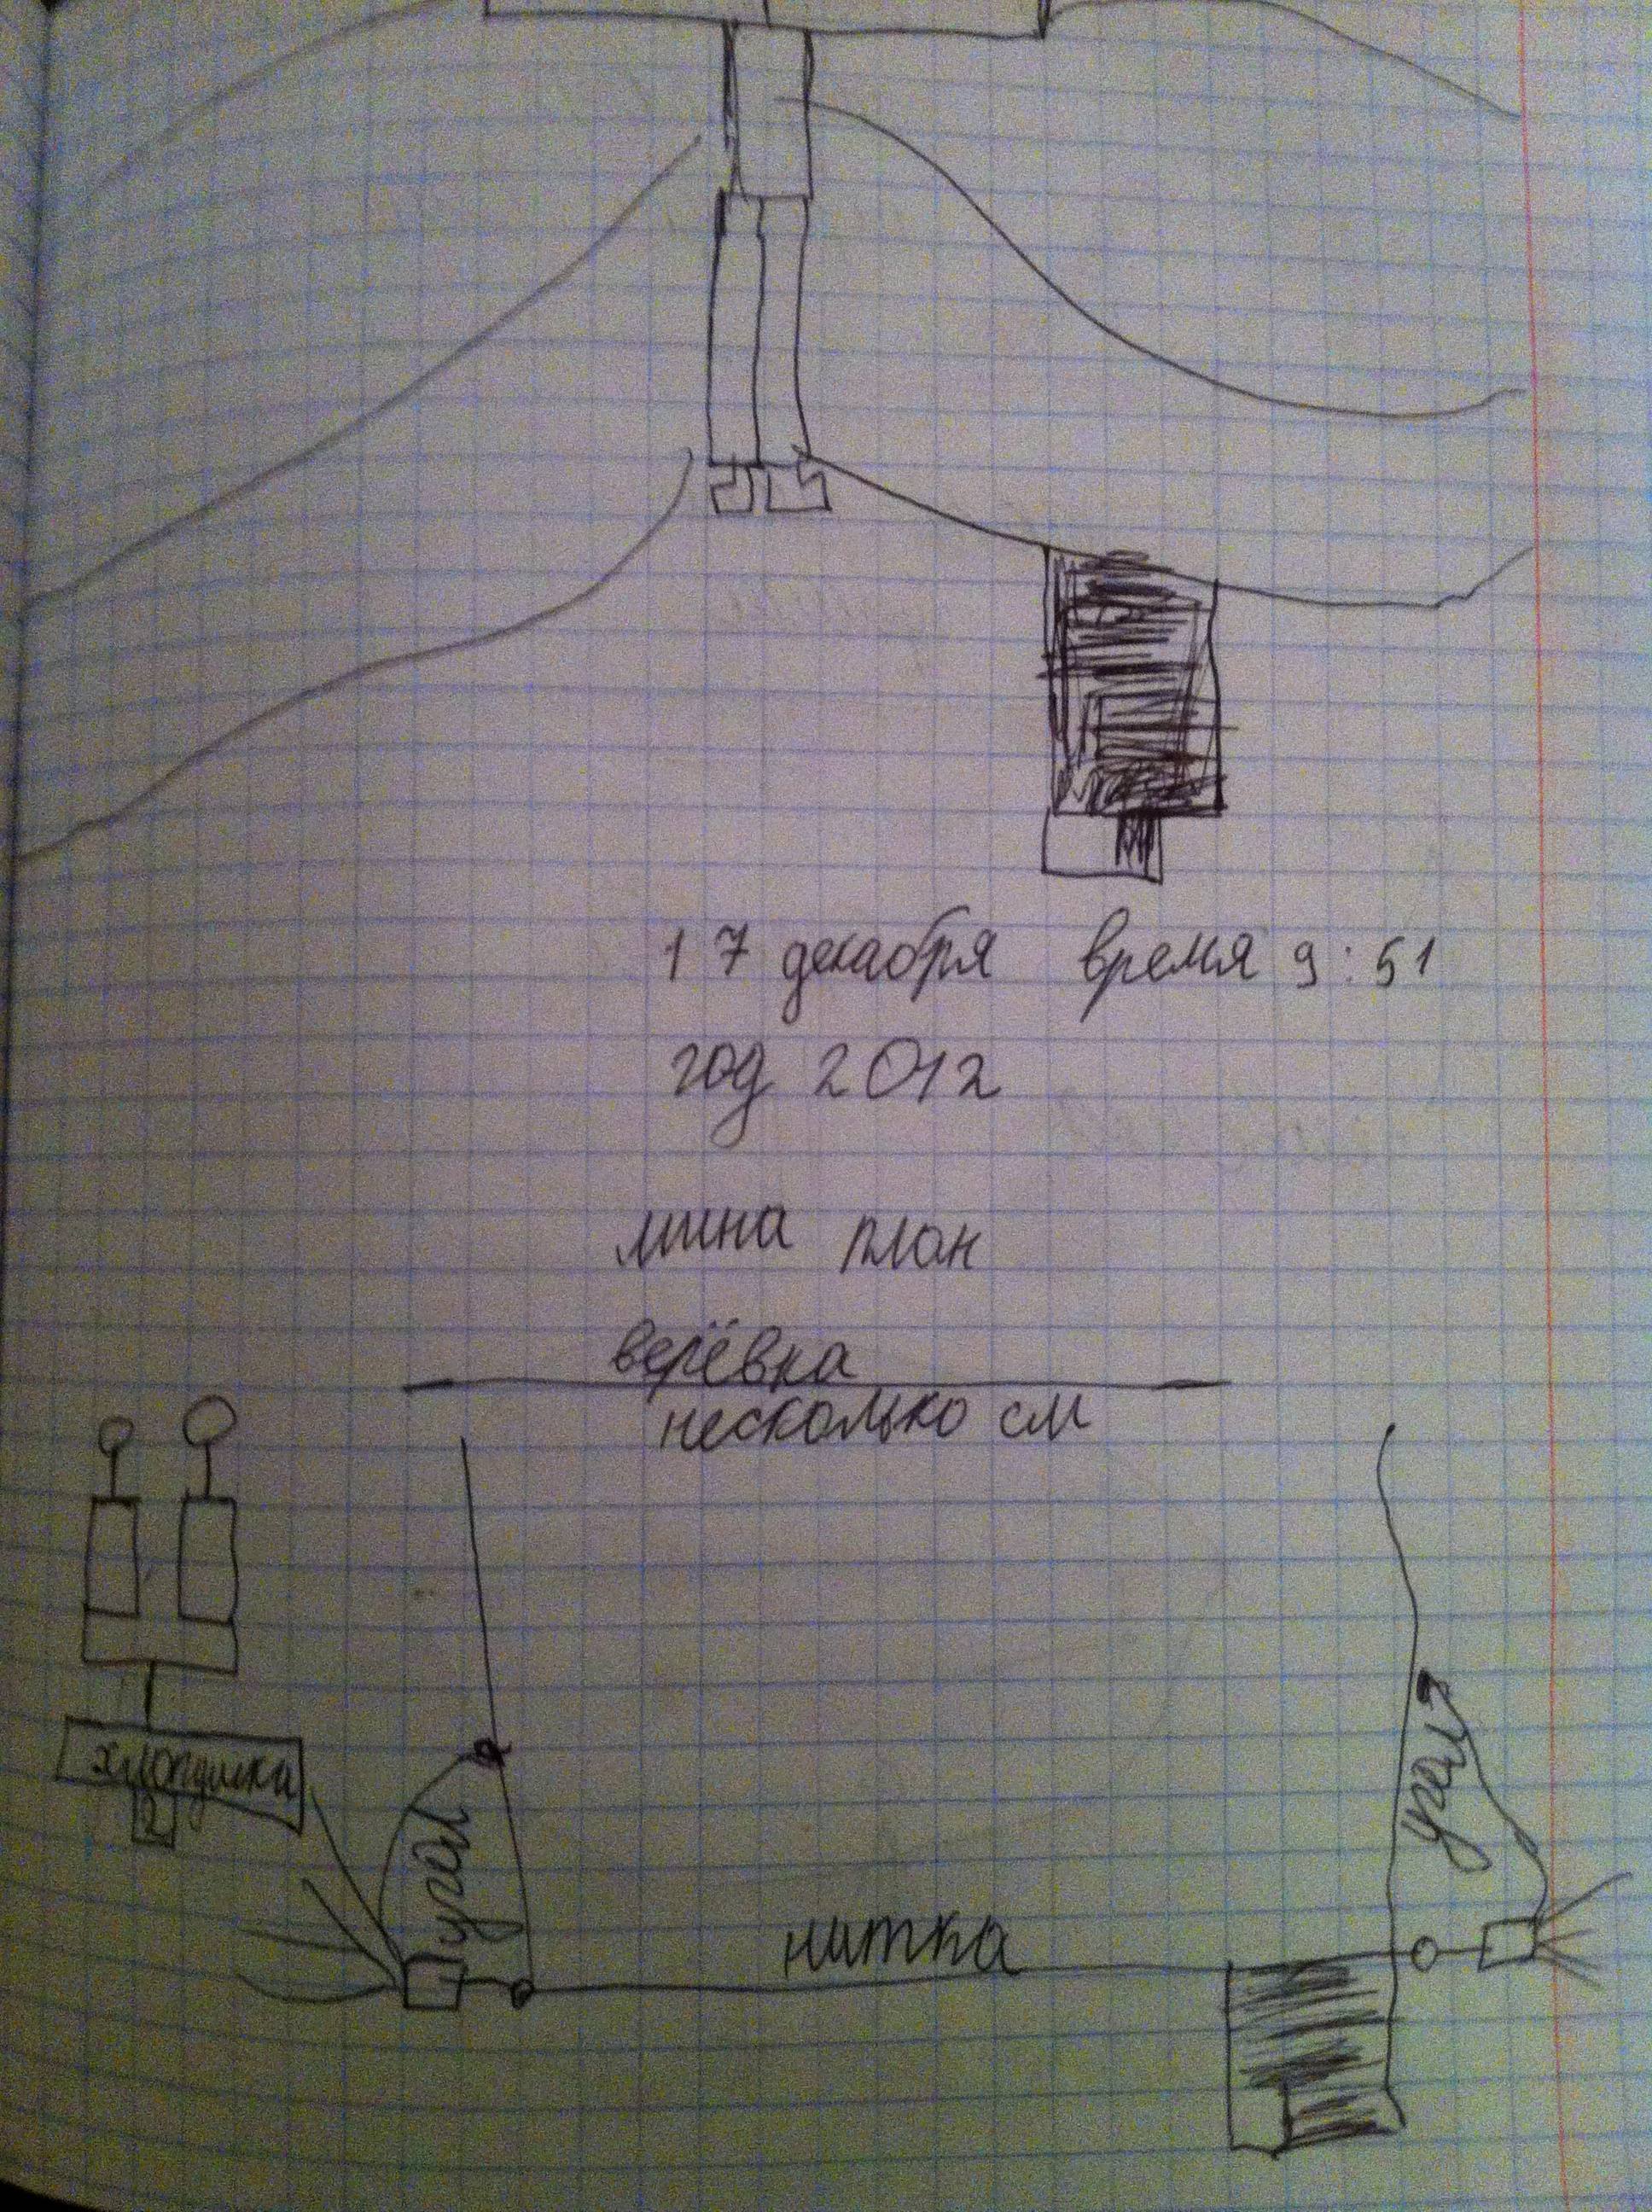 17 декабря время 9:51
год 2012
мина план
верёвка
несколько см
хлопушка
2
угол
угол
нитка